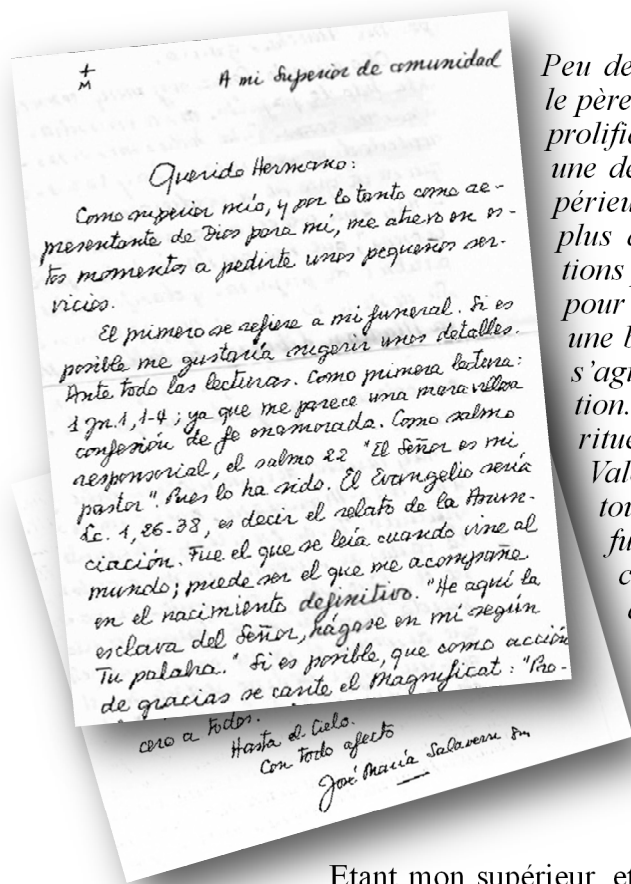 +
M
A mi Superior de comunidad
Querido Hermano:
Como superior mío, y por lo tanto como re-
presentante de Dios para mí, me atrevo en es-
tos momentos a pedirte unos pequeños ser-
vicios.
El primero se refiere a mi funeral. Si es
posible me gustaría sugerir unos detalles.
Ante todo las lecturas. Como primera lectura:
1 Jn. 1, 1-4; ya que me parece una maravillosa
confesión de fe enamorada. Como salmo
responsorial, el salmo 22 "El Señor es mi
pastor". Pues lo ha sido. El Evangelio sería
Lc. 1, 26-38, es decir el relato de la Anun-
ciación. Fue el que se leía cuando vine al
mundo; puede ser el que me acompañe
en el nacimiento definitivo. "He aquí la
esclava del Señor, hágase en mí según
Tu palabra." Si es posible, que como acción
de gracias se cante el Magnificat: "Pro-
cero a todos.
Hasta el Cielo.
Con todo afecto
José María Salaverri sm
Peu de
le père
prolifi
une de
périeu
plus
tions
pour
une b
s'agi
tion.
ritue
Val
tou
fu
c
Etant mon supérieur et